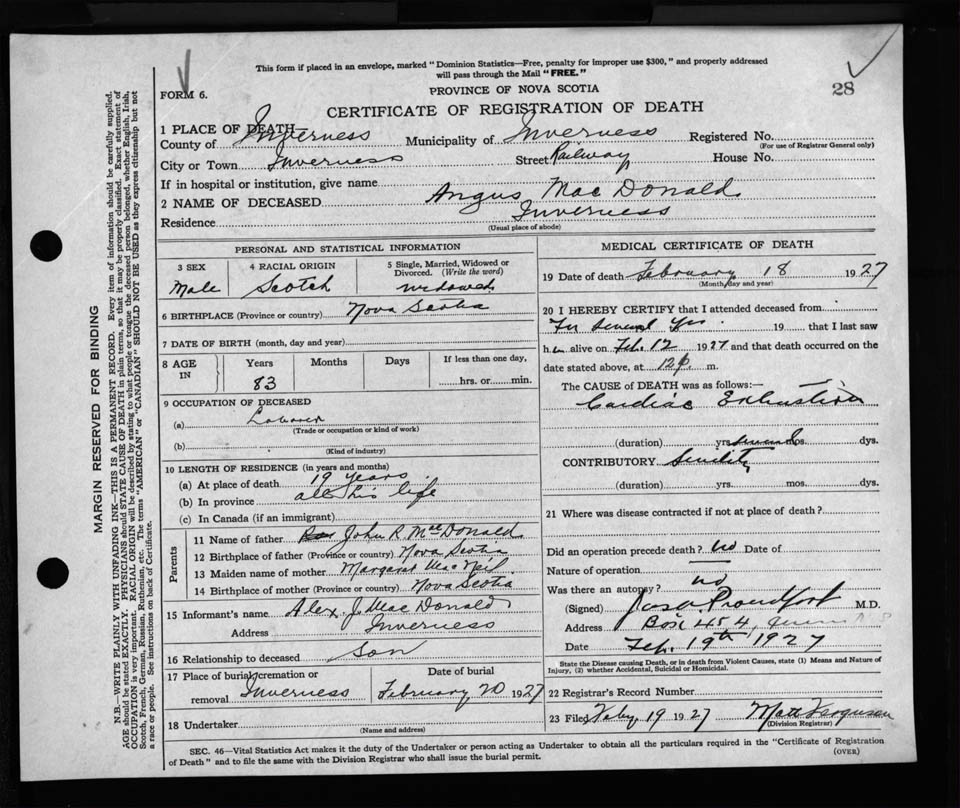 This form if placed in an envelope, marked "Dominion Statistics—Free, penalty for improper use $300," and properly addressed
will pass through the Mail "FREE."
FORM 6.
PROVINCE OF NOVA SCOTIA
28
CERTIFICATE OF REGISTRATION OF DEATH
1 PLACE OF DEATH
County of Inverness Municipality of Inverness Registered No.
(For use of Registrar General only)
City or Town Inverness Street Railway House No.
If in hospital or institution, give name
2 NAME OF DECEASED Angus Mac Donald
Residence Inverness
(Usual place of abode)
PERSONAL AND STATISTICAL INFORMATION
3 SEX 4 RACIAL ORIGIN 5 Single, Married, Widowed or
Divorced. (Write the word)
Male Scotch widowed
6 BIRTHPLACE (Province or country) Nova Scotia
7 DATE OF BIRTH (month, day and year)
8 AGE IN Years Months Days If less than one day,
83 hrs. or min.
9 OCCUPATION OF DECEASED
(a) Laborer
(Trade or occupation or kind of work)
(b)
(Kind of industry)
10 LENGTH OF RESIDENCE (in years and months)
(a) At place of death 19 years
(b) In province all his life
(c) In Canada (if an immigrant)
Parents
11 Name of father John R. MacDonald
12 Birthplace of father (Province or country) Nova Scotia
13 Maiden name of mother Margaret MacNeil
14 Birthplace of mother (Province or country) Nova Scotia
15 Informant's name Alex. J. MacDonald
Address Inverness
16 Relationship to deceased son
17 Place of burial, cremation or Date of burial
removal Inverness February 20 1927
18 Undertaker
(Name and address)
MEDICAL CERTIFICATE OF DEATH
19 Date of death February 18 1927
(Month, day and year)
20 I HEREBY CERTIFY that I attended deceased from
For several yrs. 19 that I last saw
h alive on Feb. 12 1927 and that death occurred on the
date stated above, at 12 p. m.
The CAUSE of DEATH was as follows:—
Cardiac Exhustion
(duration) yrs. several mos. dys.
CONTRIBUTORY Senility
(duration) yrs. mos. dys.
21 Where was disease contracted if not at place of death?
Did an operation precede death? no Date of
Nature of operation
Was there an autopsy? no
(Signed) Proudfoot M.D.
Address Box 454,
Date Feb. 19th 1927
State the Disease causing Death, or in death from Violent Causes, state (1) Means and Nature of
Injury, (2) whether Accidental, Suicidal or Homicidal.
22 Registrar's Record Number
23 Filed Feby. 19 1927 Matt Ferguson
(Division Registrar)
SEC. 46—Vital Statistics Act makes it the duty of the Undertaker or person acting as Undertaker to obtain all the particulars required in the "Certificate of Registration
of Death" and to file the same with the Division Registrar who shall issue the burial permit.
(OVER)
MARGIN RESERVED FOR BINDING
N.B.—WRITE PLAINLY WITH UNFADING INK—THIS IS A PERMANENT RECORD. Every item of information should be carefully supplied.
AGE should be stated EXACTLY. PHYSICIANS should STATE CAUSE OF DEATH in plain terms, so that it may be properly classified. Exact statement of
OCCUPATION is very important. RACIAL ORIGIN will be described by stating to what people or tongue the deceased person belonged, whether English, Irish,
Scotch, French, German, Russian, Ruthenian, etc. The terms "AMERICAN" or "CANADIAN" SHOULD NOT BE USED as they express citizenship but not
a race or people. See instructions on back of Certificate.